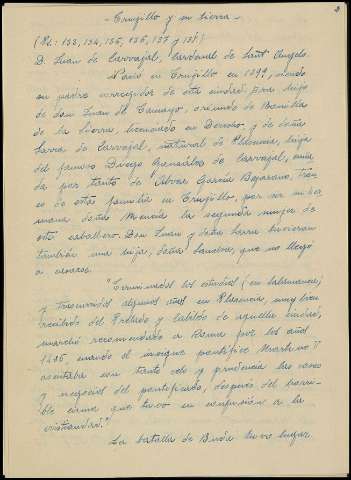 - Trujillo y su tierra -
(Pd.: 133, 134, 135, 136, 137 y 138)
D. Juan de Carvajal, Cardenal de Sant Angelo.
Nació en Trujillo en 1399, siendo
su padre corregidor de esta ciudad. Era hijo
de don Juan de Tamayo, oriundo de Bonilla
de la Sierra, licenciado en Derecho y de doña
Sarra de Carvajal, natural de Plasencia, hija
del famoso Diego González de Carvajal, cuña
da por tanto de Alvar García Bejarano, tron
co de esta familia en Trujillo, por ser su her
mana doña Mencía la segunda mujer de
este caballero. Don Juan y doña Sarra tuvieron
también una hija, doña Sancha, que no llegó
a casarse.
"Terminados los estudios (en Salamanca)
y trascurridos algunos años en Plasencia, muy bien
recibido del Prelado y Cabildo de aquella ciudad,
marchó recomendado a Roma por los años
1426, cuando el insigne pontífice Martino V
asentaba con tanto celo y prudencia las cosas
y negocios del pontificado, después del horri-
ble cisma que tuvo en confusión a la
cristiandad."
La batalla de Buda tuvo lugar